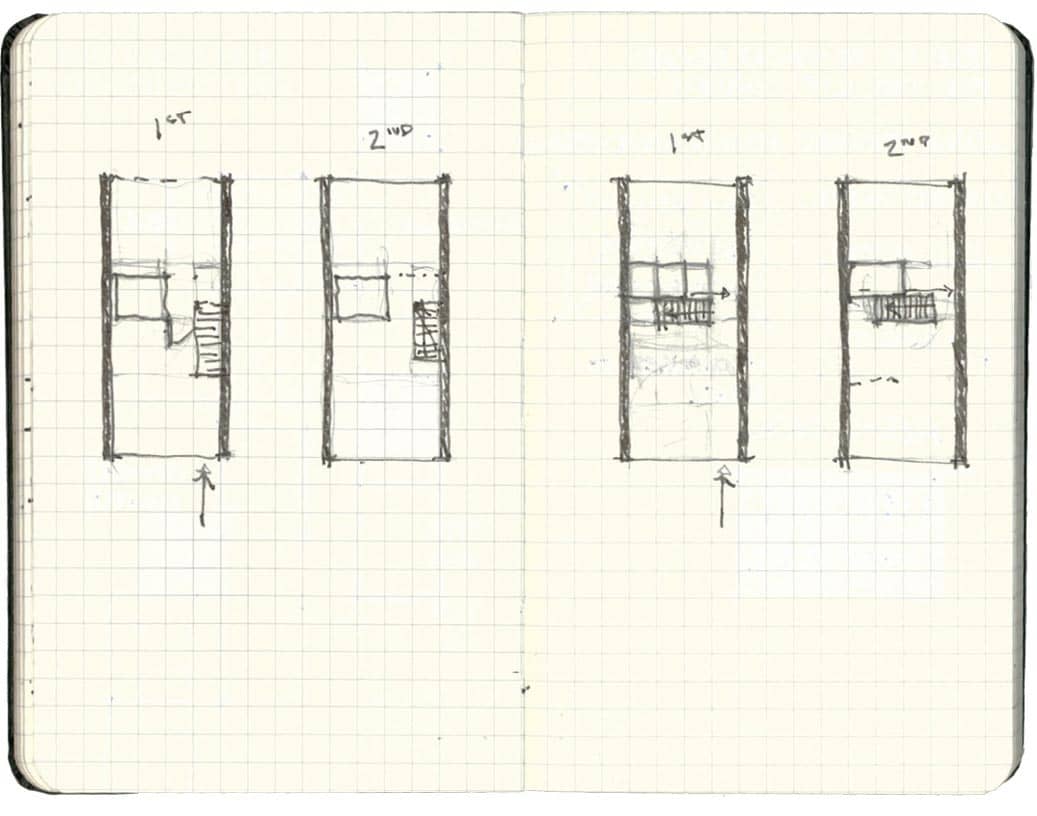 1ST
2ND
1ST
2ND